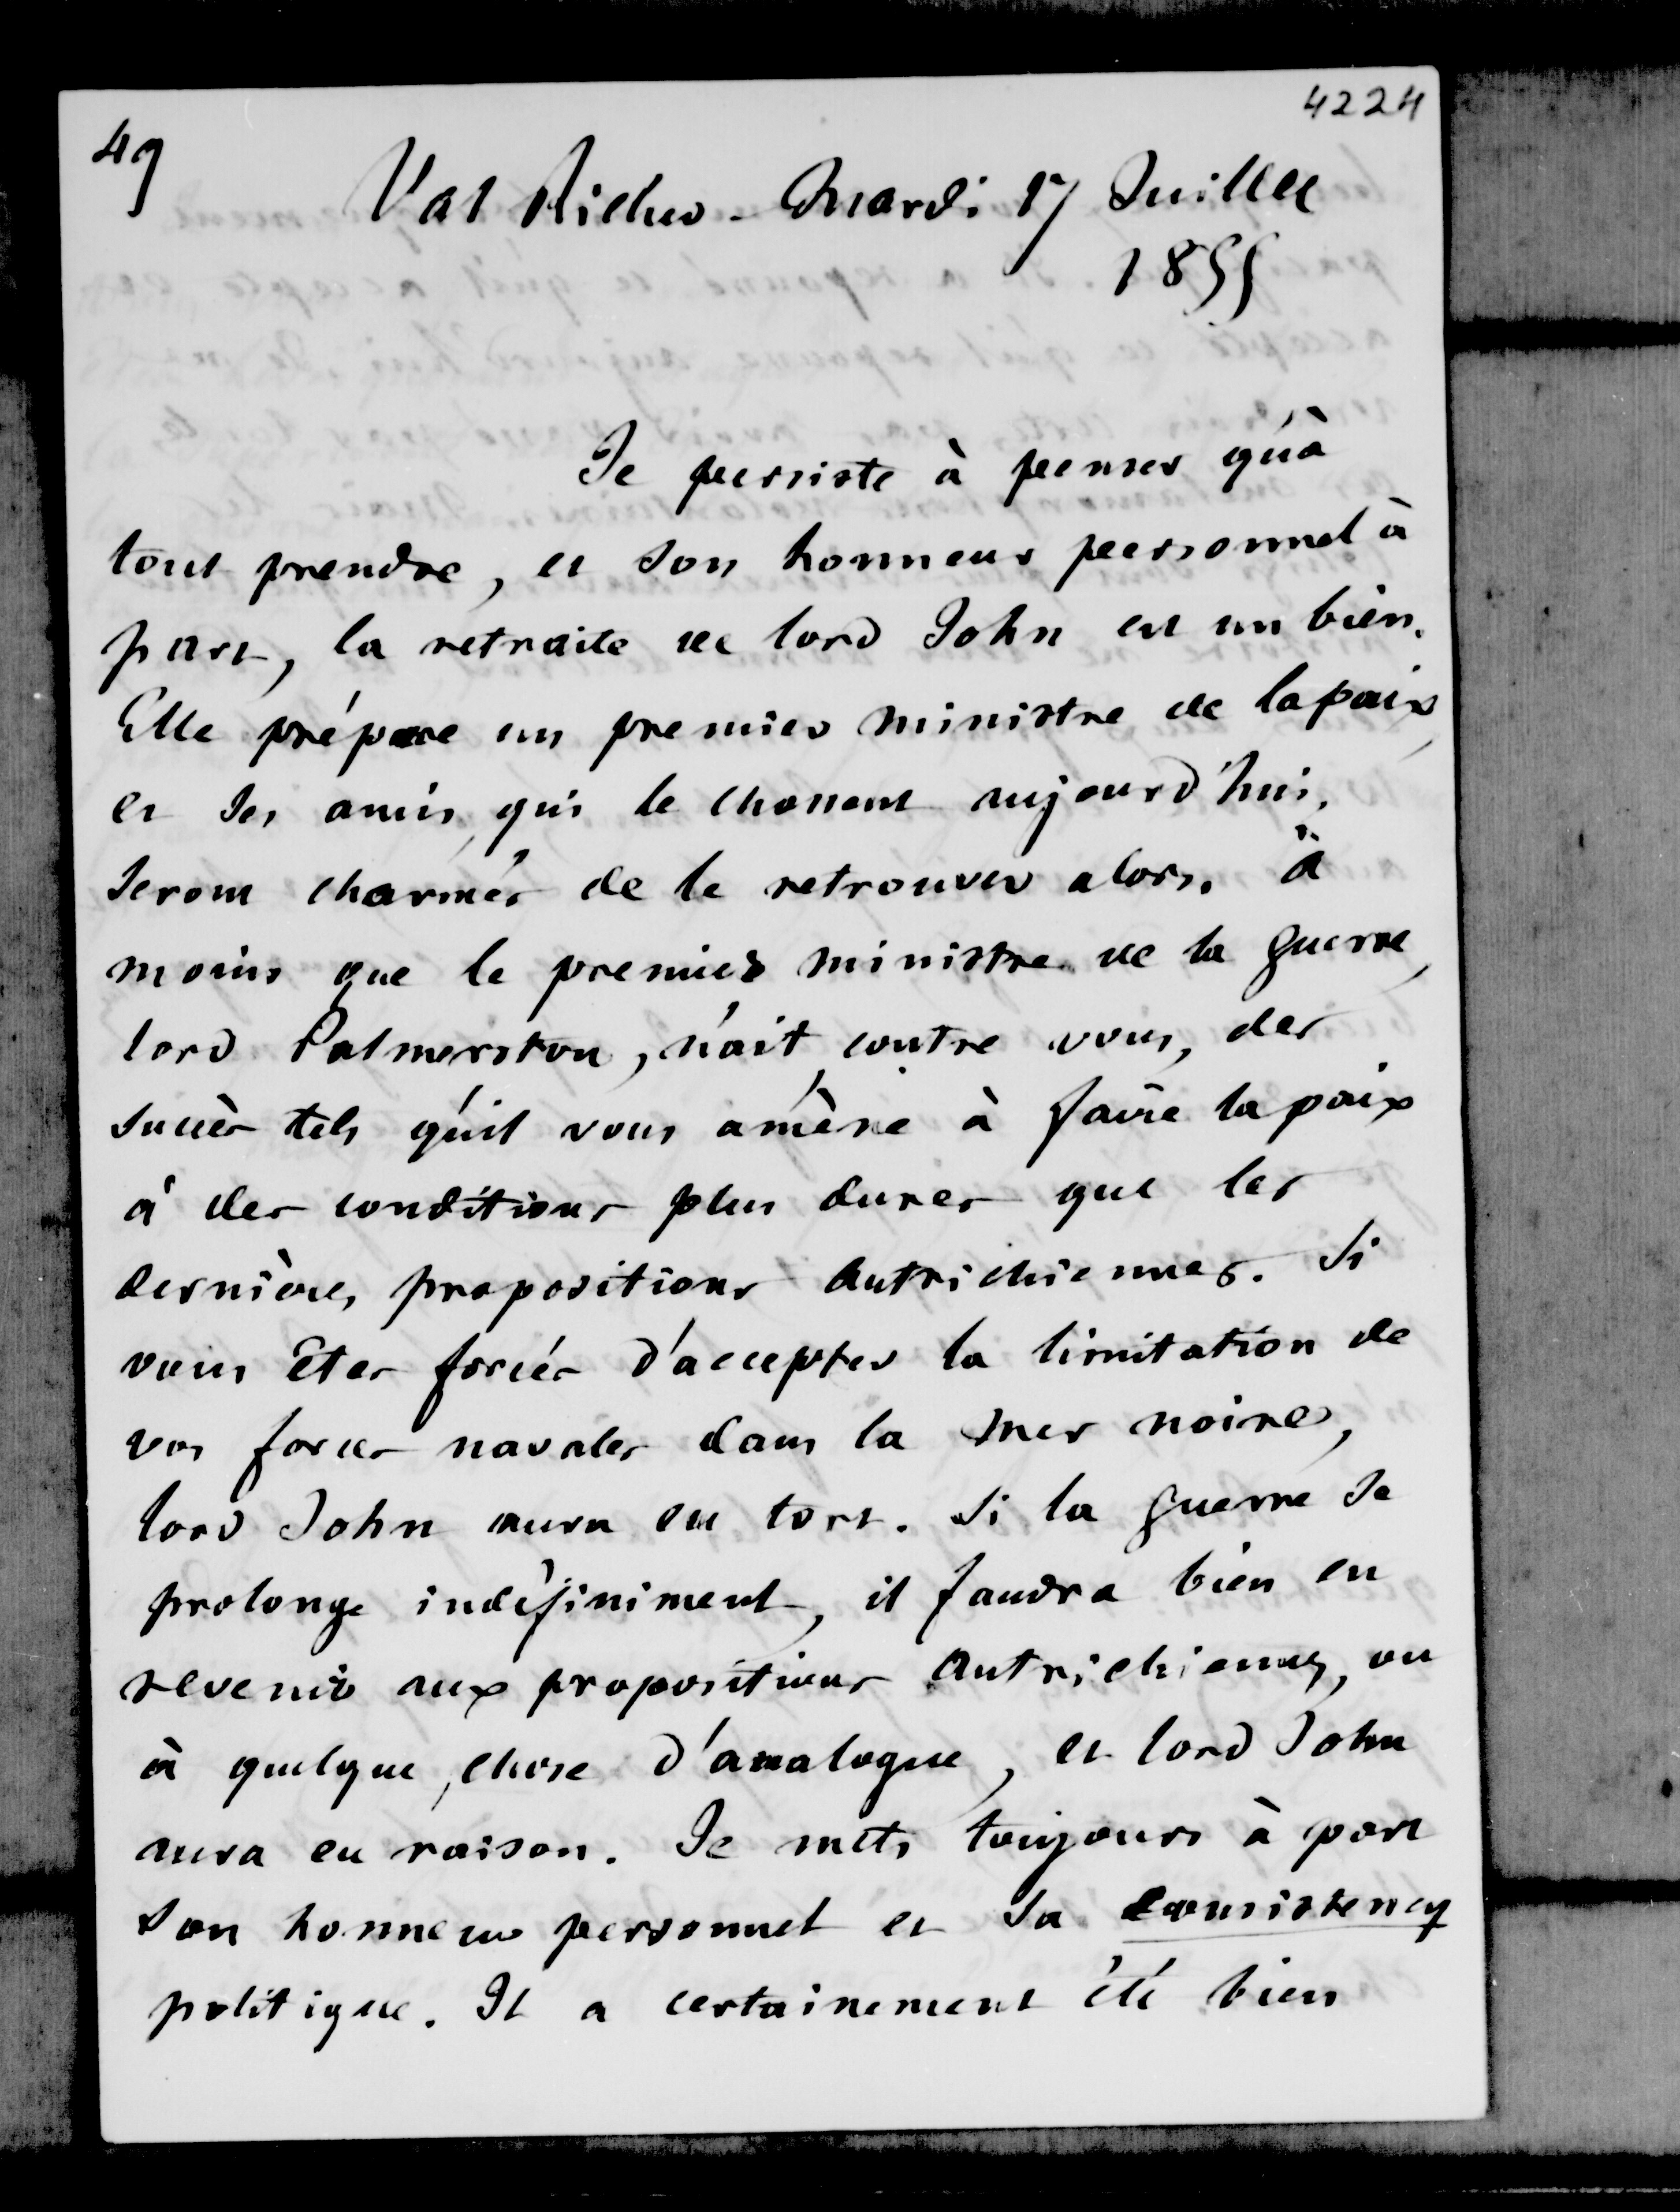 4224
49
Val Richer - Mardi 17 Juillet
1855
Je persiste à penser qu'à
tout prendre, et son honneur personnel à
part, la retraite de lord John est un bien.
Elle prépare un premier ministre de la paix,
et ses amis, qui le chassent aujourd'hui,
seront charmés de le retrouver alors. à
moins que le premier ministre de la guerre,
lord Palmerston, n'ait, contre vous, des
succès tels qu'il vous amène à faire la paix
à des conditions plus dures que les
dernières propositions Autrichiennes. Si
vous êtes forcés d'accepter la limitation de
vos forces navales dans la mer noire,
lord John aura eu tort. Si la guerre se
prolonge indéfiniment, il faudra bien en
revenir aux propositions Autrichiennes, ou
à quelque chose d'analogue, et lord John
aura eu raison. Je mets toujours à part
son honneur personnel et sa consistency
politique. Il a certainement été bien